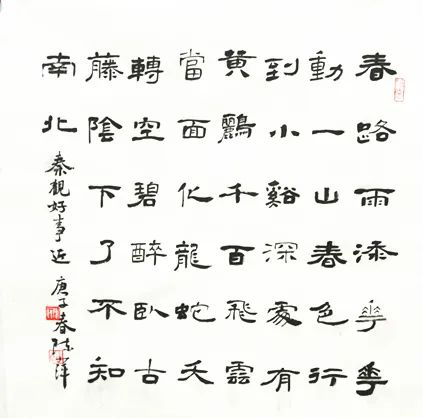 春路雨添華華
動一山春色行
到小谿深處有
黃鸝千百飛雲
當面化龍蛇夭
轉空碧醉卧古
藤陰下了不知
南北
秦觀好事近 庚子春